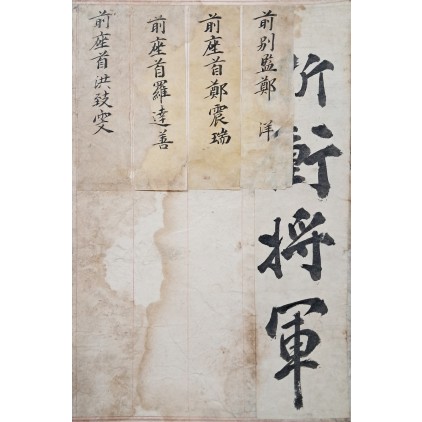 折衝将軍
前別監鄭 洋
前座首鄭震瑞
前座首羅達善
前座首洪致